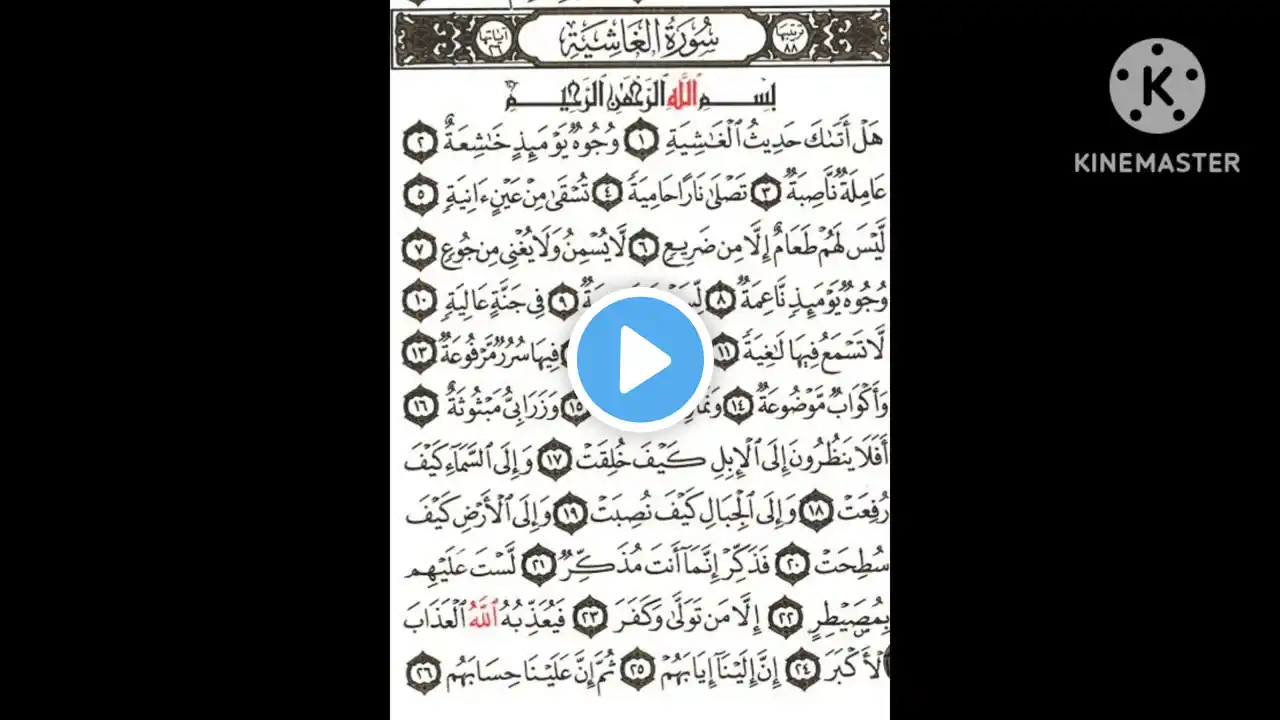 ترتيبها ٨٨
سُورَةُ الغَاشِيَةِ
آياتها ٢٦
بِسْمِ ٱللَّهِ ٱلرَّحْمَٰنِ ٱلرَّحِيمِ
هَلْ أَتَىٰكَ حَدِيثُ ٱلْغَٰشِيَةِ ١ وُجُوهٌ يَوْمَئِذٍ خَٰشِعَةٌ ٢
عَامِلَةٌ نَّاصِبَةٌ ٣ تَصْلَىٰ نَارًا حَامِيَةً ٤ تُسْقَىٰ مِنْ عَيْنٍ ءَانِيَةٍ ٥
لَّيْسَ لَهُمْ طَعَامٌ إِلَّا مِن ضَرِيعٍ ٦ لَّا يُسْمِنُ وَلَا يُغْنِى مِن جُوعٍ ٧
وُجُوهٌ يَوْمَئِذٍ نَّاعِمَةٌ ٨ ٩ فِى جَنَّةٍ عَالِيَةٍ ١٠
لَّا تَسْمَعُ فِيهَا لَٰغِيَةً ١١ فِيهَا سُرُرٌ مَّرْفُوعَةٌ ١٣
وَأَكْوَابٌ مَّوْضُوعَةٌ ١٤ ١٥ وَزَرَابِىُّ مَبْثُوثَةٌ ١٦
أَفَلَا يَنظُرُونَ إِلَى ٱلْإِبِلِ كَيْفَ خُلِقَتْ ١٧ وَإِلَى ٱلسَّمَآءِ كَيْفَ
رُفِعَتْ ١٨ وَإِلَى ٱلْجِبَالِ كَيْفَ نُصِبَتْ ١٩ وَإِلَى ٱلْأَرْضِ كَيْفَ
سُطِحَتْ ٢٠ فَذَكِّرْ إِنَّمَآ أَنتَ مُذَكِّرٌ ٢١ لَّسْتَ عَلَيْهِم
بِمُصَيْطِرٍ ٢٢ إِلَّا مَن تَوَلَّىٰ وَكَفَرَ ٢٣ فَيُعَذِّبُهُ ٱللَّهُ ٱلْعَذَابَ
ٱلْأَكْبَرَ ٢٤ إِنَّ إِلَيْنَآ إِيَابَهُمْ ٢٥ ثُمَّ إِنَّ عَلَيْنَا حِسَابَهُم ٢٦
K
KINEMASTER